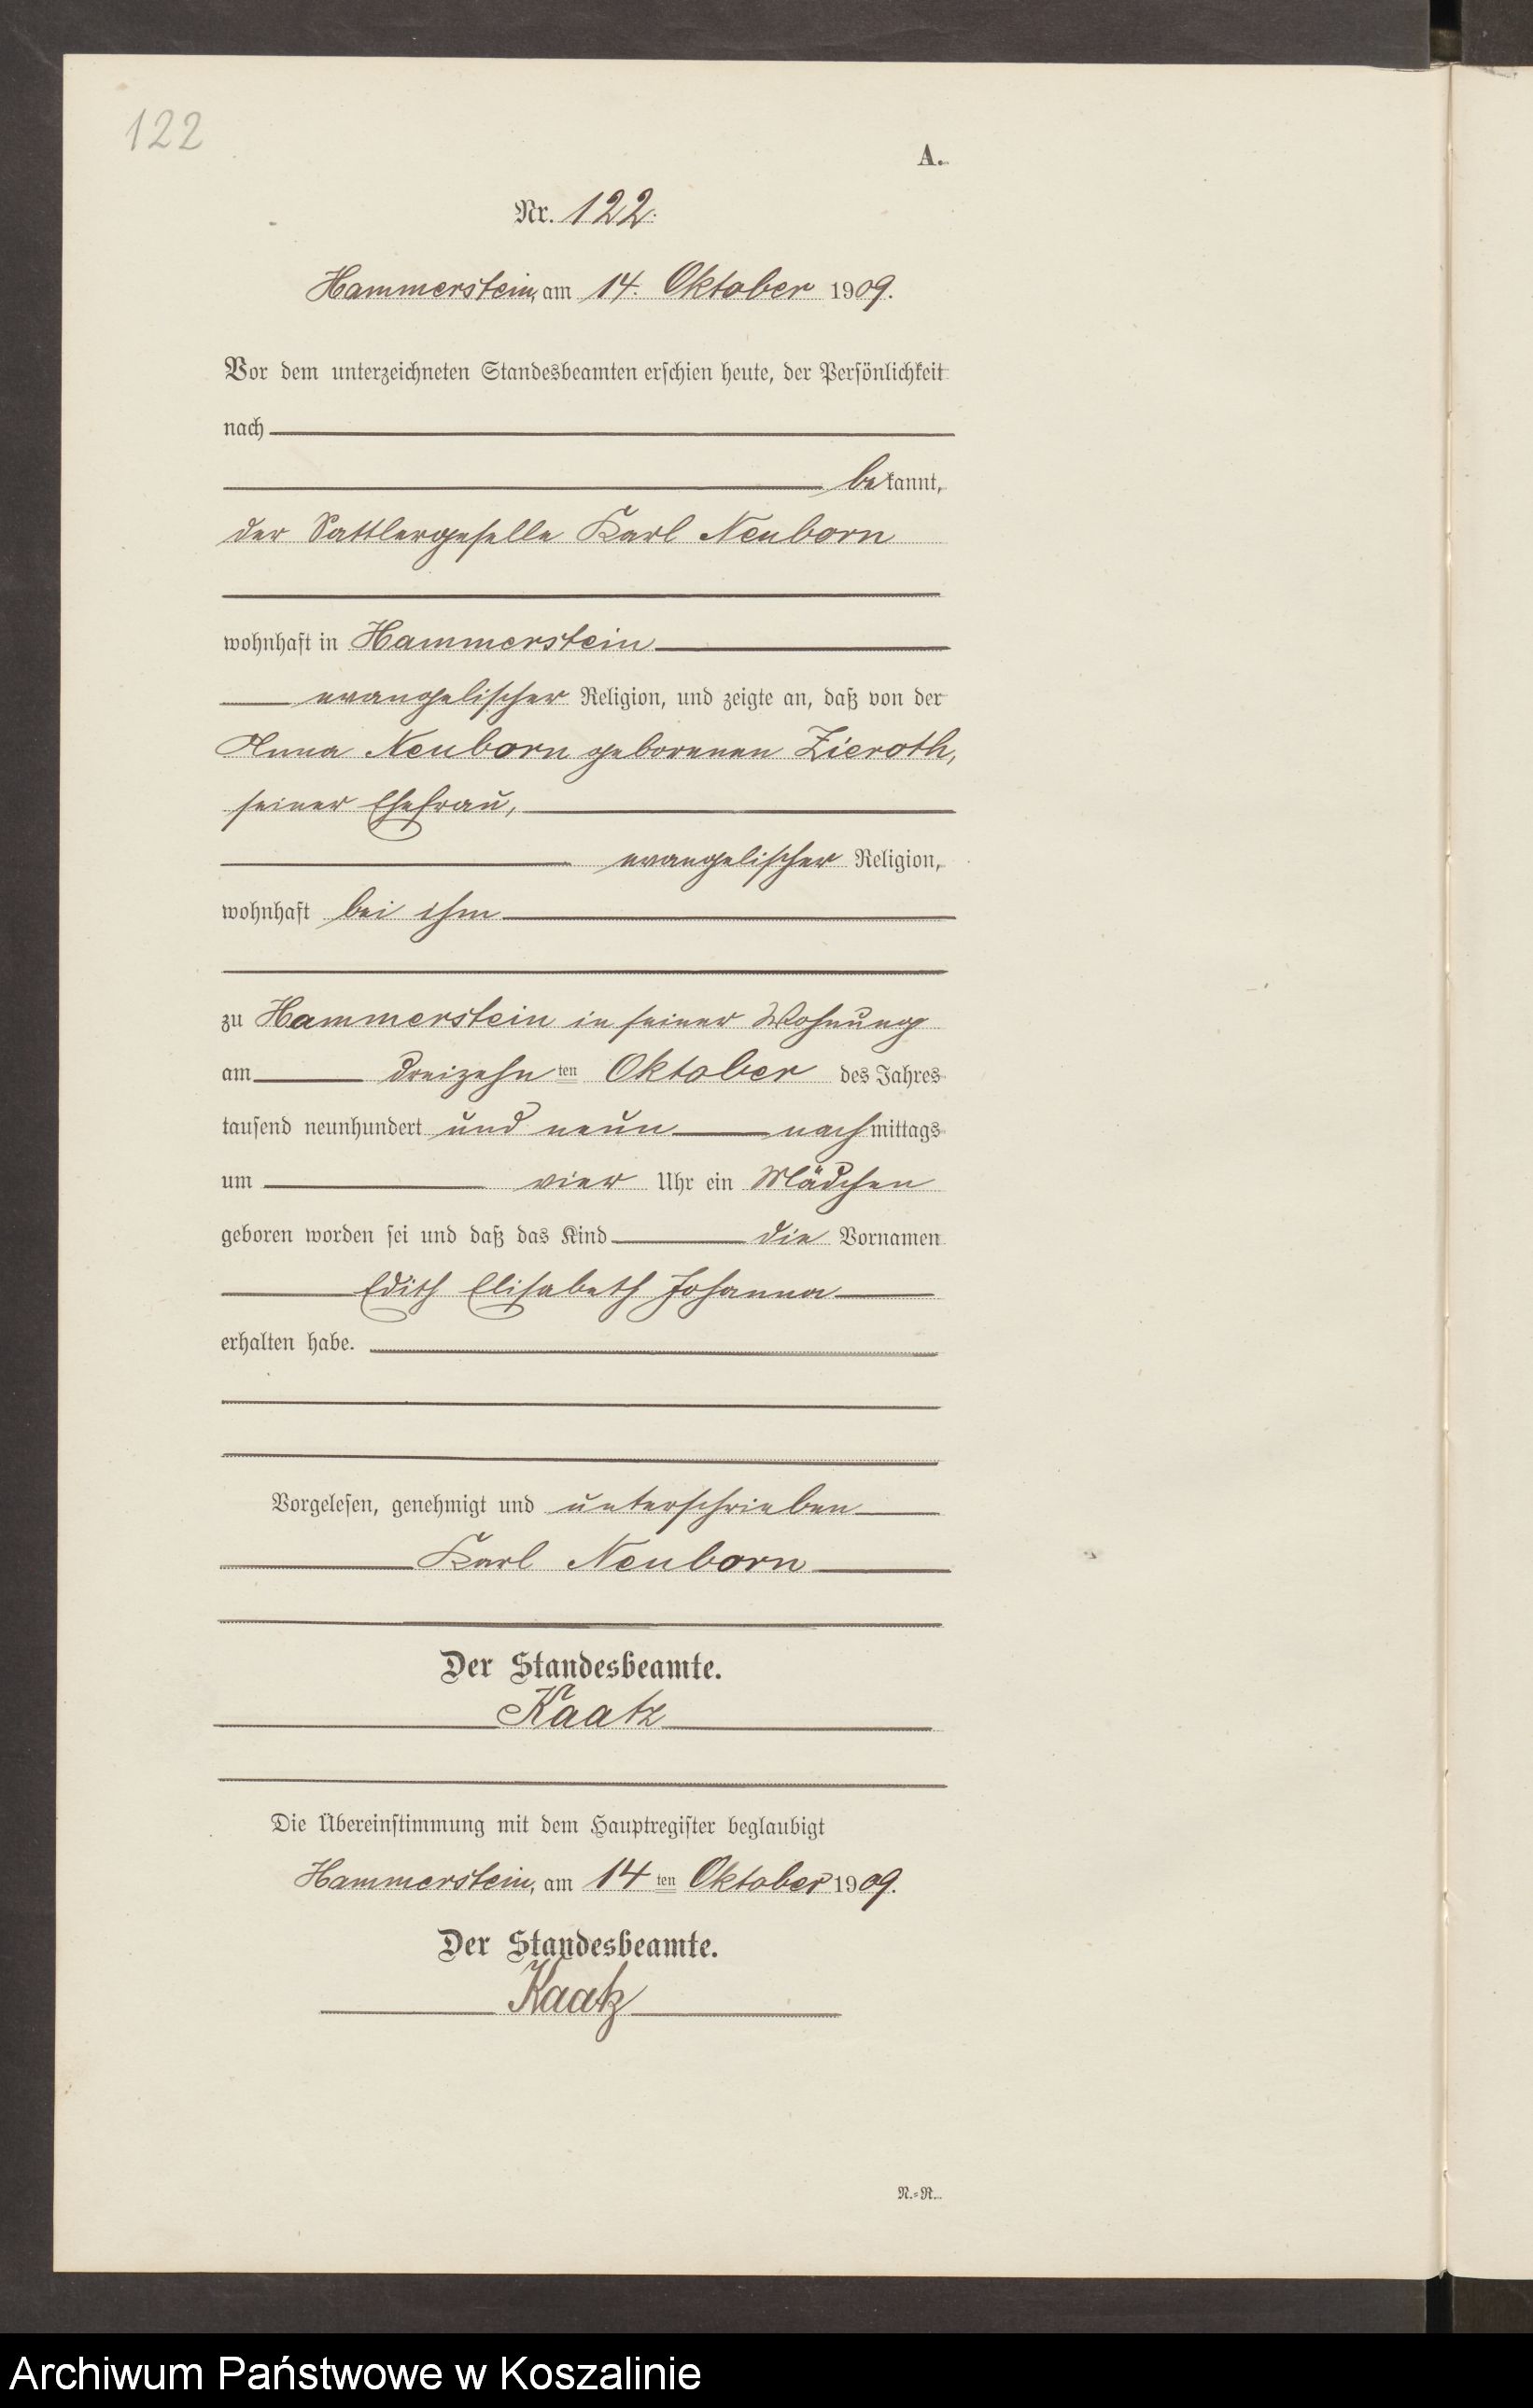 122
A.
Nr. 122.
Hammerstein, am 14. Oktober 1909.
Vor dem unterzeichneten Standesbeamten erschien heute, der Persönlichkeit
nach
bekannt,
der Sattlergeselle Karl Neuborn
wohnhaft in Hammerstein
evangelischer Religion, und zeigte an, daß von der
Anna Neuborn geborenen Zieroth,
seiner Ehefrau,
evangelischer Religion,
wohnhaft bei ihm
zu Hammerstein in seiner Wohnung
am dreizehnten Oktober des Jahres
tausend neunhundert und neun nachmittags
um vier Uhr ein Mädchen
geboren worden sei und daß das Kind die Vornamen
Edith Elisabeth Johanna
erhalten habe.
Vorgelesen, genehmigt und unterschrieben
Karl Neuborn
Der Standesbeamte.
Kaatz
Die Übereinstimmung mit dem Hauptregister beglaubigt
Hammerstein, am 14ten Oktober 1909.
Der Standesbeamte.
Kaatz
N.=R.
Archiwum Państwowe w Koszalinie